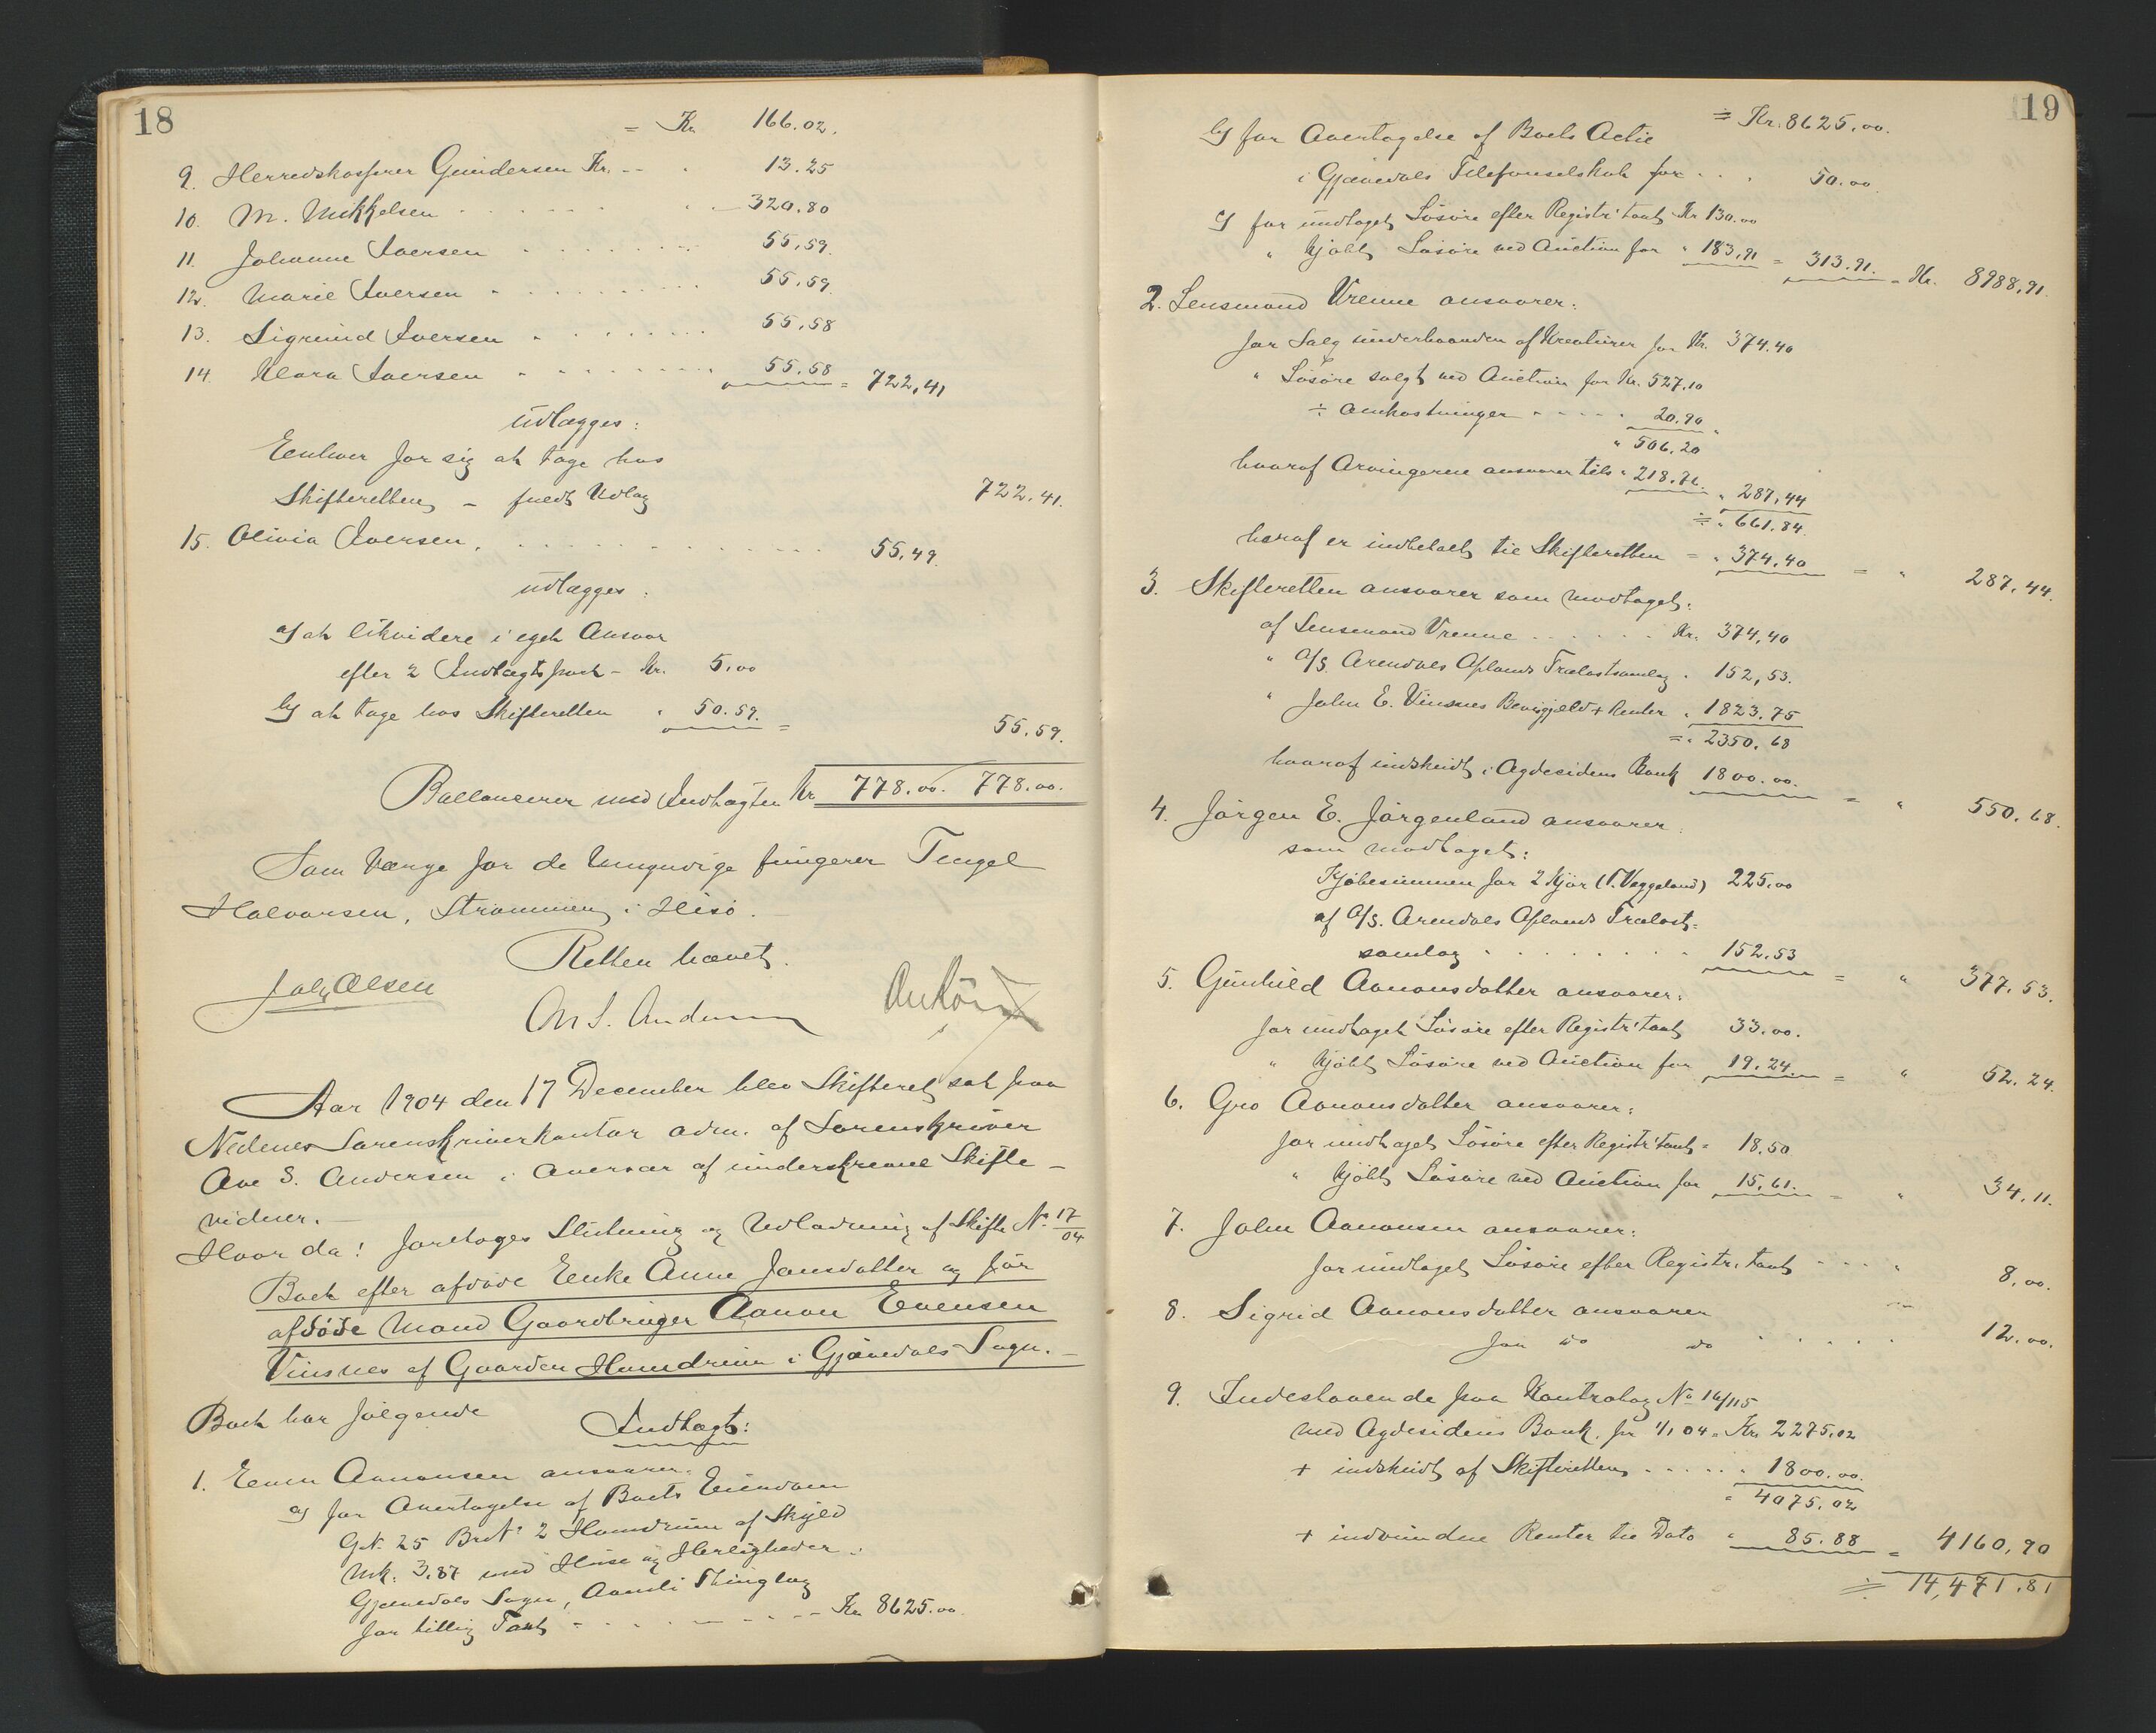 18
= Kr. 166.02.
9. Herredskasserer Gundersen Kr. - - . 13.25
10. M. Mikkelsen . . . . . . . . 320.80
11. Johanne Iversen . . . . . . . . 55.59.
12. Marie Iversen . . . . . . . . 55.59
13. Sigmund Iversen . . . . . . . 55.58
14. Klara Iversen . . . . . . . . 55.58 = 722,41
udlægges:
Eenhver for sig at tage hos
Skifteretten - fuldt Udlæg 722.41.
15. Olivia Iversen. . . . . . . . . . . 55,49.
udlægges:
a) at likvidere i eget Ansvar
efter 2 Indtægtspost - Kr. 5.00
b) at tage hos Skifteretten " 50.59. = 55.59.
Ballancerer med Indtægten Kr. 778.00. 778.00.
Som Værge for de Umyndige fungerer Tengel
Halvorsen, Strømmen i Hisø.
Retten hævet.
Joh. Olsen
Ov S. Andersen
Aar 1904 den 17 December blev Skifteret sat paa
Nedenes Sorenskriverkontor adm. af Sorenskriver
Ove S. Andersen i Overvær af underskrevne Skifte-
vidner.
Hvor da: foretoges Slutning og Udlodning af Skifte No. 17/04
Boet efter afdøde Enke Anne Jonsdatter og før
afdøde Mand Gaardbruger Aanon Evensen
Vinsnes af Gaarden Homdrum i Gjøvedals Sogn.-
Boet har følgende
Indtægt:
1. Even Aanonsen ansvarer.
a) for Overtagelse af Boets Eiendom
G.N. 25 Br.N. 2 Homdrum af Skyld
Mk. 3.87 med Huse og Herligheder i
Gjøvedals Sogn, Aamli Thinglag
for tillig Taxt - - . . - - . - - Kr. 8625.00.
19
= Kr. 8625.00.
b) for Overtagelse af Boets Actie
i Gjøvedals Telefonselskab for . . . 50.00.
c) for undtaget Løsøre efter Registr. taxt Kr 130.00
" kjøbt Løsøre ved Auction for " 183,91 = 313.91. = Kr. 8988,91.
2. Lensmand Vrenne ansvarer:
for Salg underhaanden af Kreaturer for Kr. 374.40
" Løsøre solgt ved Auction for Kr. 527,10
÷ Omkostninger - - - - . 20.90
" 506.20
hvoraf Arvingerne ansvarer til " 218.76. " 287,44
= " 661.84.
heraf er indbetalt til Skifteretten = " 374,40 = " 287,44.
3. Skifteretten ansvarer som modtaget:
af Lensmand Vrenne . . . . . . Kr. 374,40
" A/S. Arendals Oplands Trælastsamlag . 152,53.
" John E. Vinsnes Bevisgjæld + Renter " 1823.75
= " 2350.68
hvoraf indskudt i Agdesidens Bank 1800.00. = " 550.68.
4. Jørgen E. Jørgenland ansvarer
som modtaget:
Kjøbesummen for 2 Kjør (T. Veggeland) 225.00
af A/S. Arendals Oplands Trælast=
samlag . . . . . . . . . 152.53 = " 377.53.
5. Gunhild Aanonsdatter ansvarer:
for undtaget Løsøre efter Registr. taxt 33.00.
" kjøbt Løsøre ved Auction for 19.24. = " 52.24.
6. Gro Aanonsdatter ansvarer:
for undtaget Løsøre efter Registr. taxt = 18.50
" kjøbt Løsøre ved Auction for 15.61. = " 34.11.
7. John Aanonsen ansvarer:
for undtaget Løsøre efter Registr. taxt - - - . 8.00.
8. Sigrid Aanonsdatter ansvarer
for do do . . . . . 12.00.
9. Indestaaende paa Kontrabog No 16/115
med Agdesidens Bank. pr 1/1 04 = Kr. 2275.02
+ indskudt af Skifteretten . . . . . " 1800.00.
" 4075.02
+ indvundne Renter til Dato " 85.88 = 4160,90
= 14,471.81